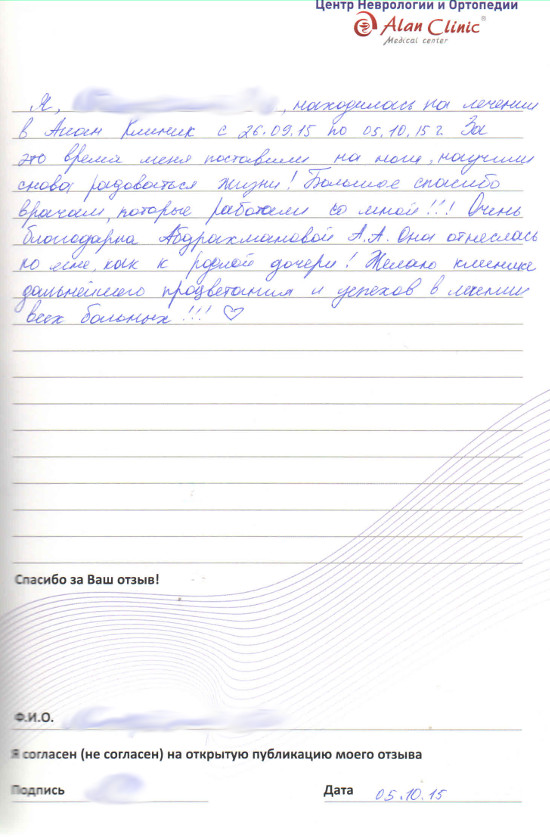 Центр Неврологии и Ортопедии
Alan Clinic®
Medical center
Я, , находилась на лечении
в Алан Клиник с 26.09.15 по 05.10.15 г. За
это время меня поставили на ноги, научили
снова радоваться жизни! Большое спасибо
врачам, которые работали со мной!!! Очень
благодарна Абдрахмановой А.А. Она отнеслась
ко мне, как к родной дочери! Желаю клинике
дальнейшего процветания и успехов в лечении
всех больных!!! ♡
Спасибо за Ваш отзыв!
Ф.И.О.
Я согласен (не согласен) на открытую публикацию моего отзыва
Подпись Дата 05.10.15